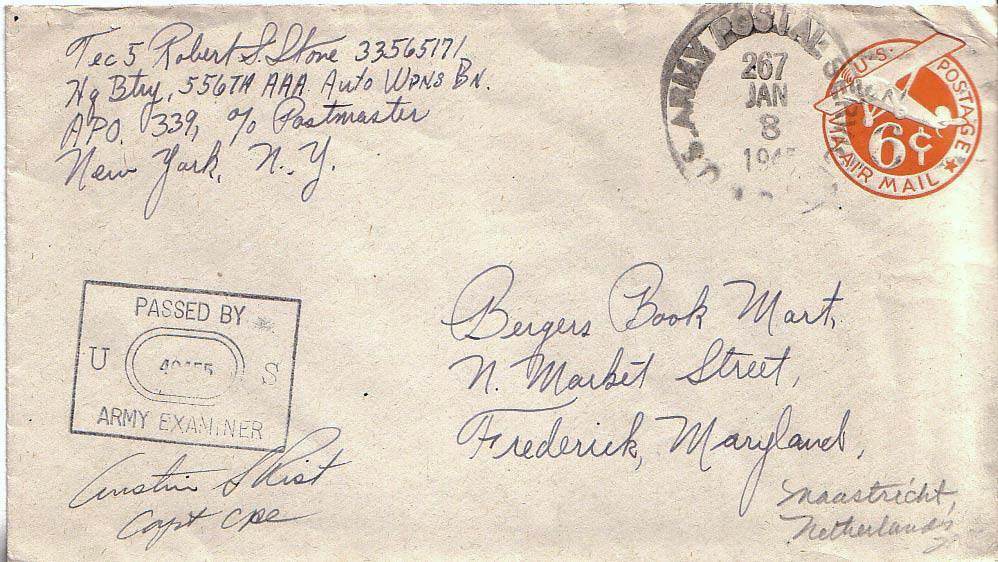 Tec 5 Robert S. Stone 33565171
Hq Btry, 556TH AAA Auto WPNS BN.
APO 339, c/o Postmaster
New York, N.Y.
U.S. ARMY POSTAL SERVICE
267
JAN
8
U.S. POSTAGE
6¢
VIA AIR MAIL
PASSED BY
U S
ARMY EXAMINER
Capt
Bergers Book Mart,
N. Market Street,
Frederick, Maryland,
Maastricht,
Netherlands